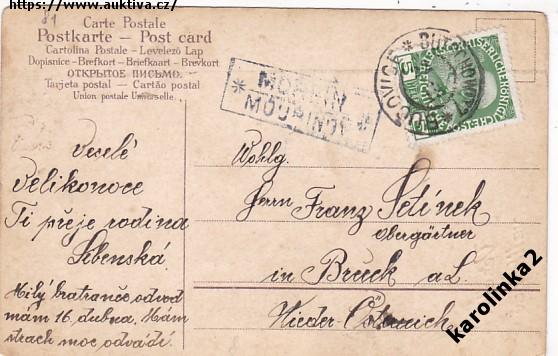 https://www.auktiva.cz/
81
Carte Postale
Postkarte — Post card
Cartolina Postale — Levelező Lap
Dopisnice — Brefkort — Briefkaart — Brevkort
ОТКРЫТОЕ ПИСЬМО.
Tarjeta postal — Cartão postal
Union postale Universelle.
Veselé
velikonoce
Ti přeje rodina
Šebenská.
Milý bratranče odvod
mám 16. dubna. Mám
strach moc odvadí.
Wohlg.
Herrn Franz Setínek
Obergärtner
in Bruck a/L.
Nieder-Österreich
karolinka2